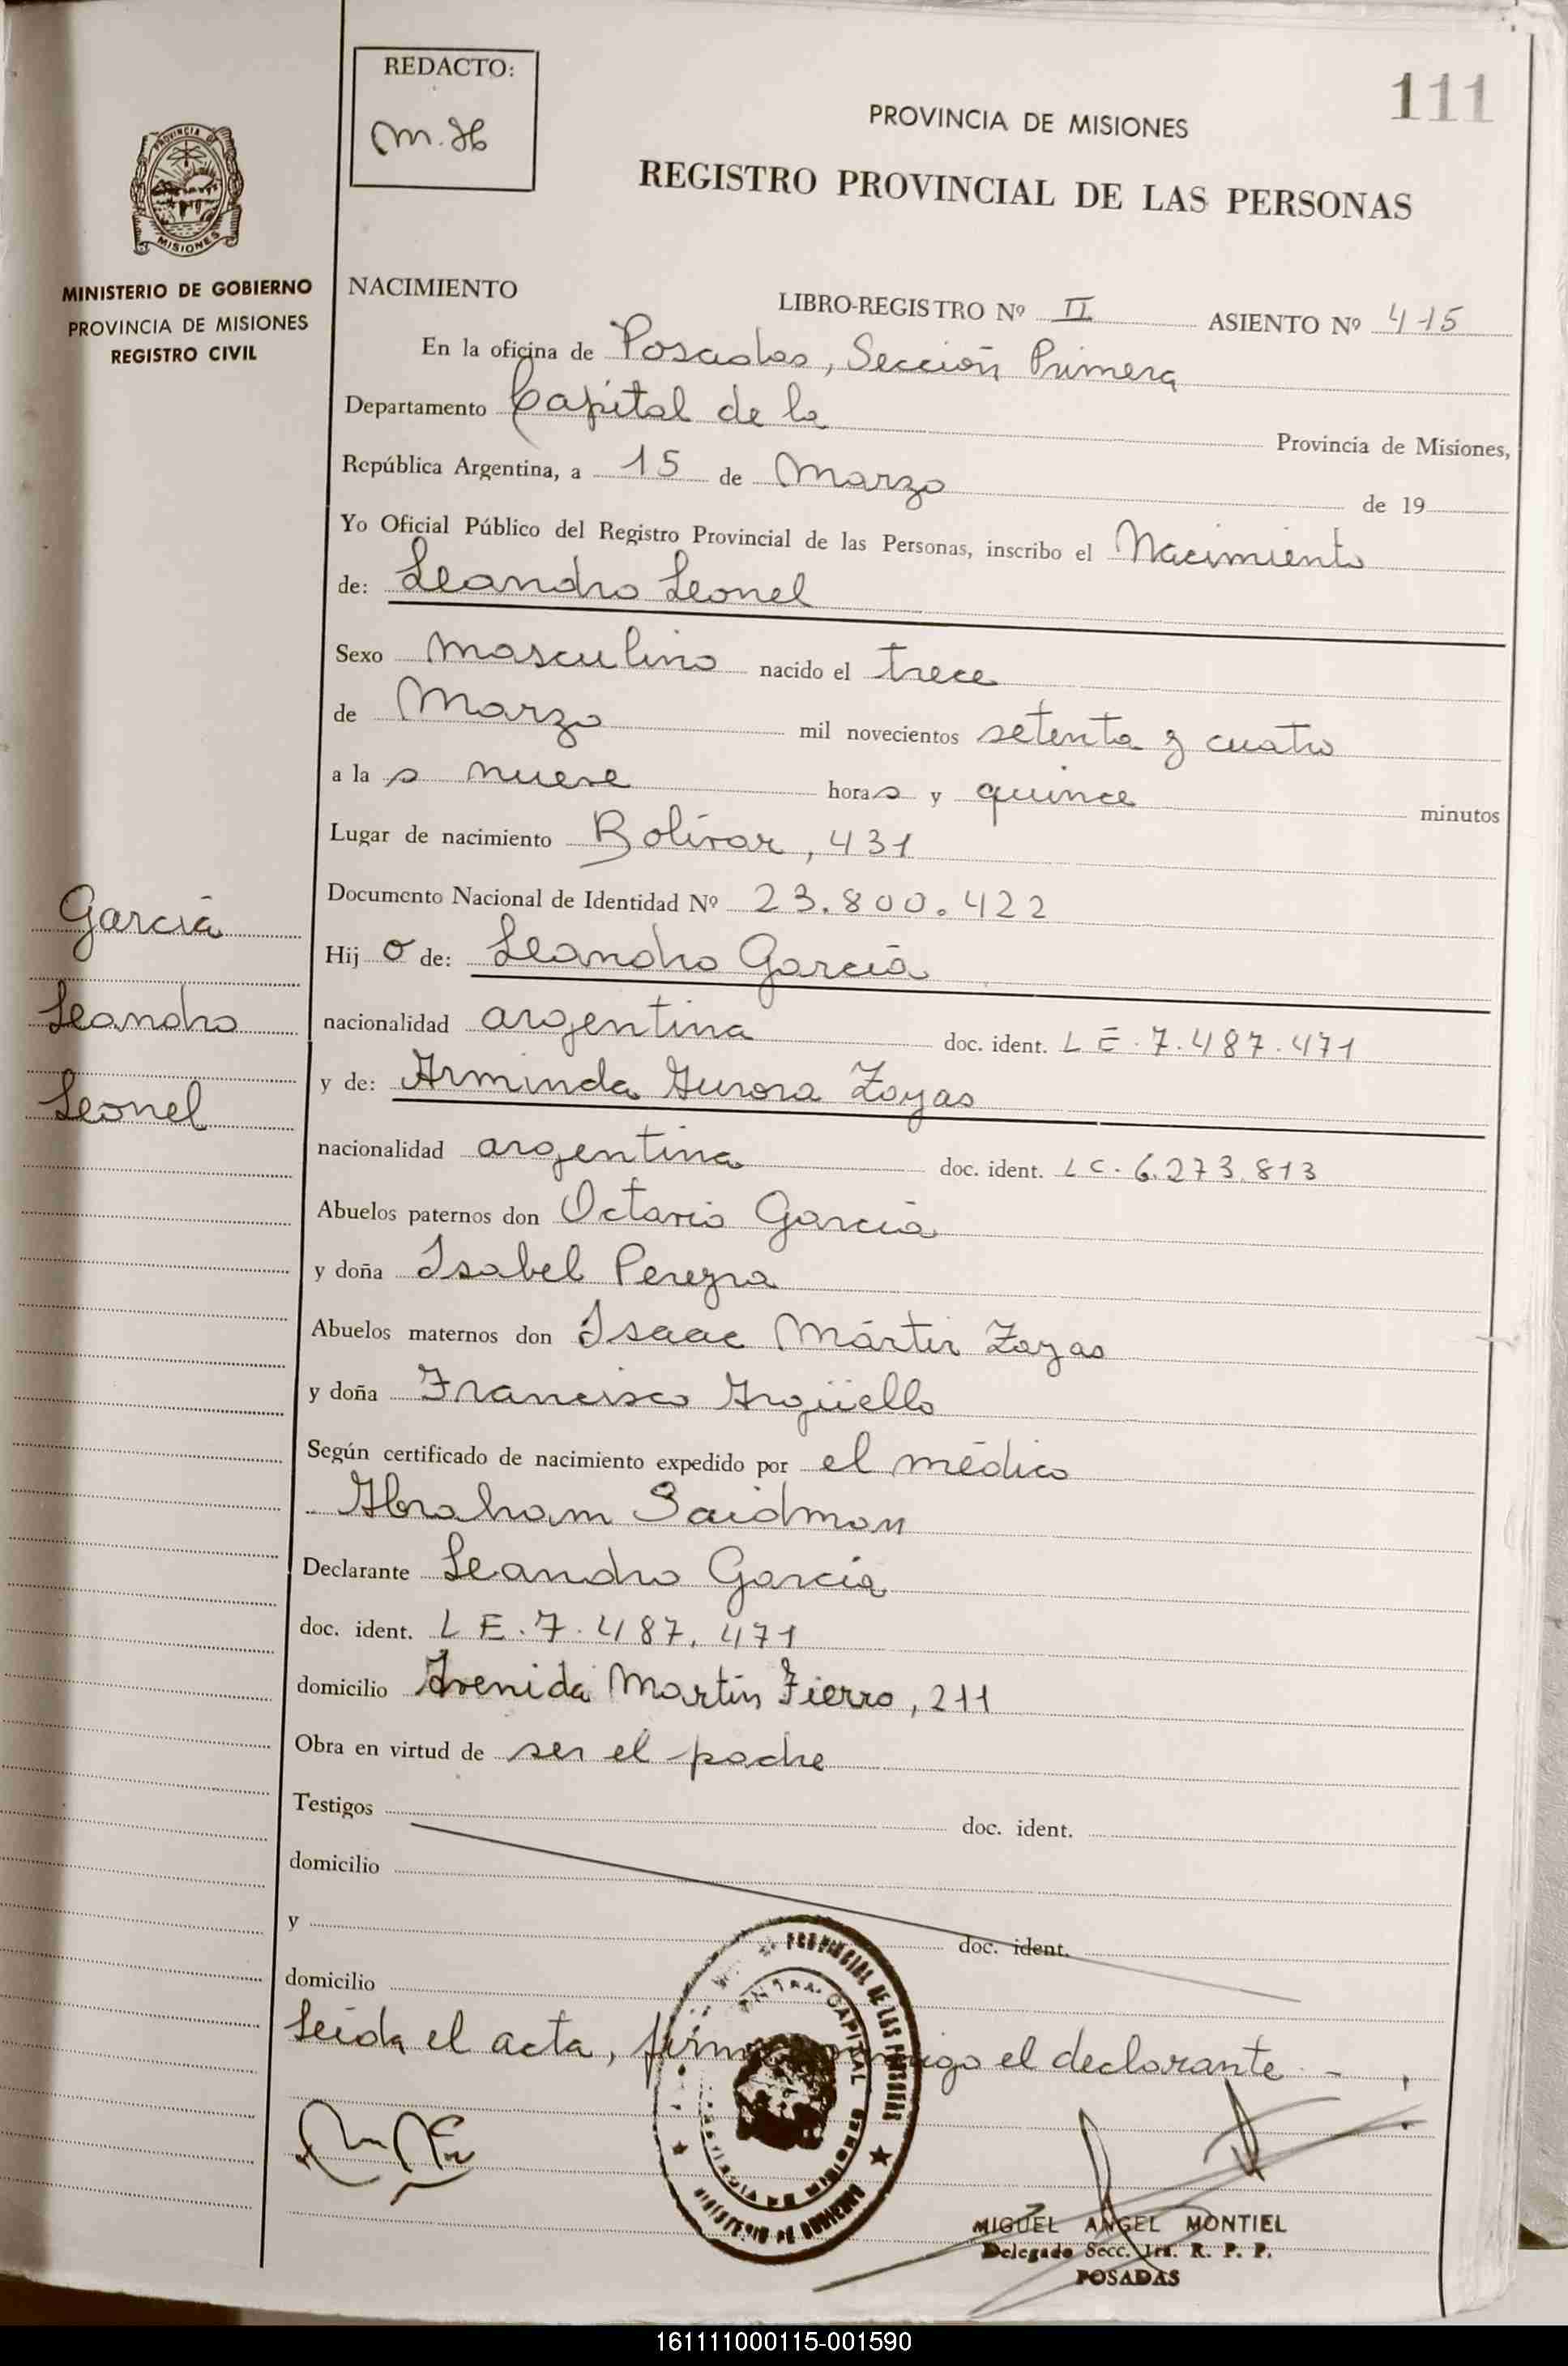 REDACTO:
M. H
111
PROVINCIA DE MISIONES
REGISTRO PROVINCIAL DE LAS PERSONAS
PROVINCIA DE
MISIONES
MINISTERIO DE GOBIERNO
PROVINCIA DE MISIONES
REGISTRO CIVIL
NACIMIENTO
LIBRO-REGISTRO Nº II ASIENTO Nº 415
En la oficina de Posadas, Sección Primera
Departamento Capital de la Provincia de Misiones,
República Argentina, a 15 de Marzo de 19
Yo Oficial Público del Registro Provincial de las Personas, inscribo el Nacimiento
de: Leandro Leonel
Sexo masculino nacido el trece
de Marzo mil novecientos setenta y cuatro
a la s nueve horas y quince minutos
Lugar de nacimiento Bolívar, 431
Documento Nacional de Identidad Nº 23.800.422
García
Leandro
Leonel
Hij o de: Leandro García
nacionalidad argentina doc. ident. L E. 7.487.471
y de: Arminda Aurora Zayas
nacionalidad argentina doc. ident. L C. 6.273.813
Abuelos paternos don Octavio García
y doña Isabel Pereyra
Abuelos maternos don Isaac Mártir Zayas
y doña Francisca Argüello
Según certificado de nacimiento expedido por el médico
Abraham Saidman
Declarante Leandro García
doc. ident. L E. 7.487.471
domicilio Avenida Martín Fierro, 211
Obra en virtud de ser el padre
Testigos doc. ident.
domicilio
y doc. ident.
domicilio
Leída el acta, firma conmigo el declarante - .
PROVINCIAL DE LAS PERSONAS
CAPITAL
PROVINCIA DE MISIONES
MINISTERIO DE GOBIERNO
MIGUEL ANGEL MONTIEL
Delegado Secc. 1ra. R. P. P.
POSADAS
161111000115-001590